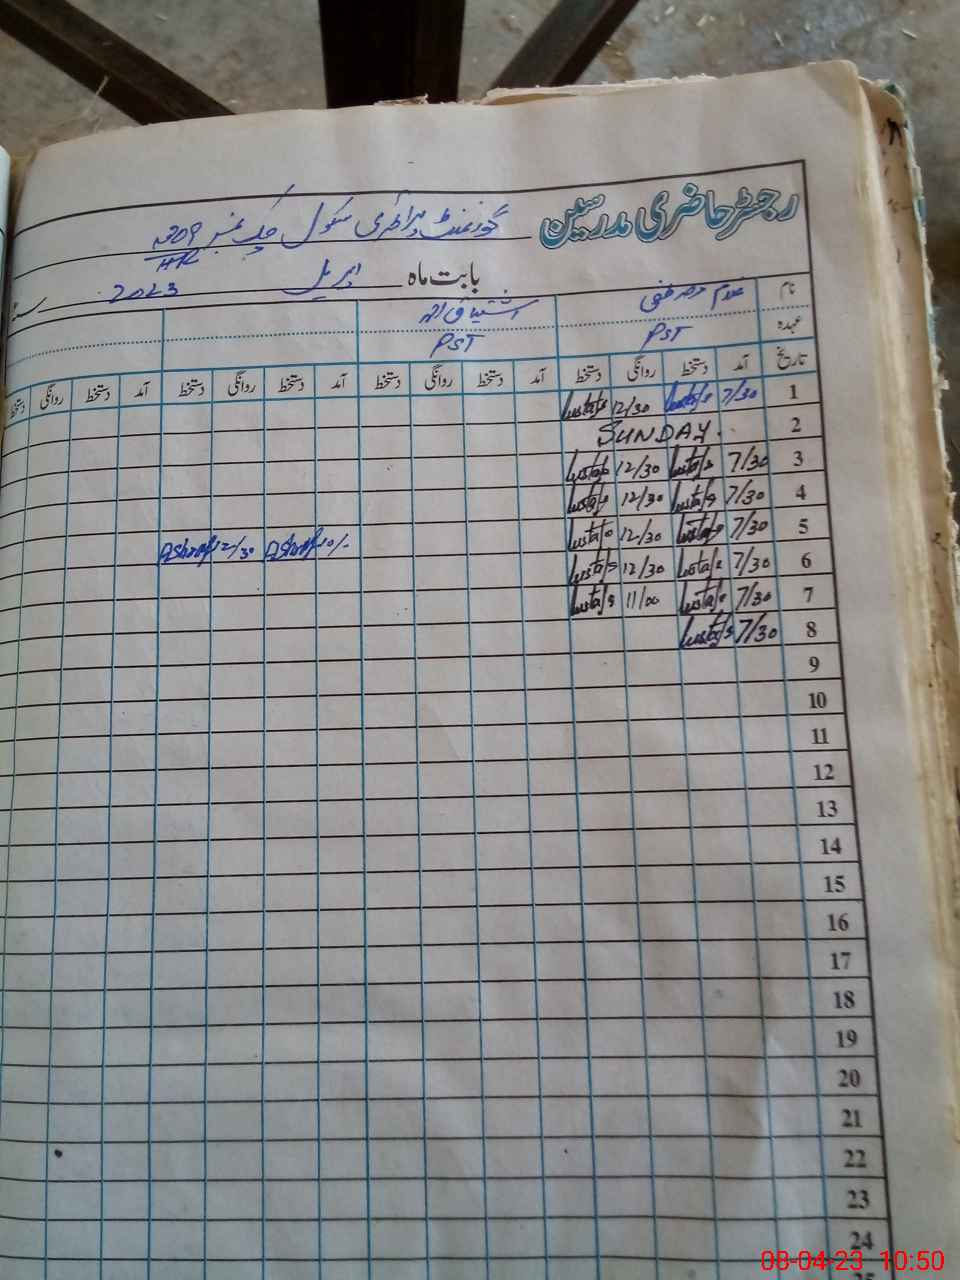 رجسٹر حاضری مدرسین گورنمنٹ پرائمری سکول چک نمبر 309
HR
بابت ماہ اپریل 2023
نام غلام مصطفی اشتیاق احمد
عہدہ PST PST
تاریخ آمد دستخط روانگی دستخط آمد دستخط روانگی دستخط آمد دستخط روانگی دستخط آمد دستخط روانگی دستخط
1 7/30 12/30
2 SUNDAY.
3 7/30 12/30
4 7/30 12/30
5 7/30 12/30 10/- Ashraf 12/30 Ashraf
6 7/30 12/30
7 7/30 11/00
8 7/30
9
10
11
12
13
14
15
16
17
18
19
20
21
22
23
24
25
08-04-23 10:50